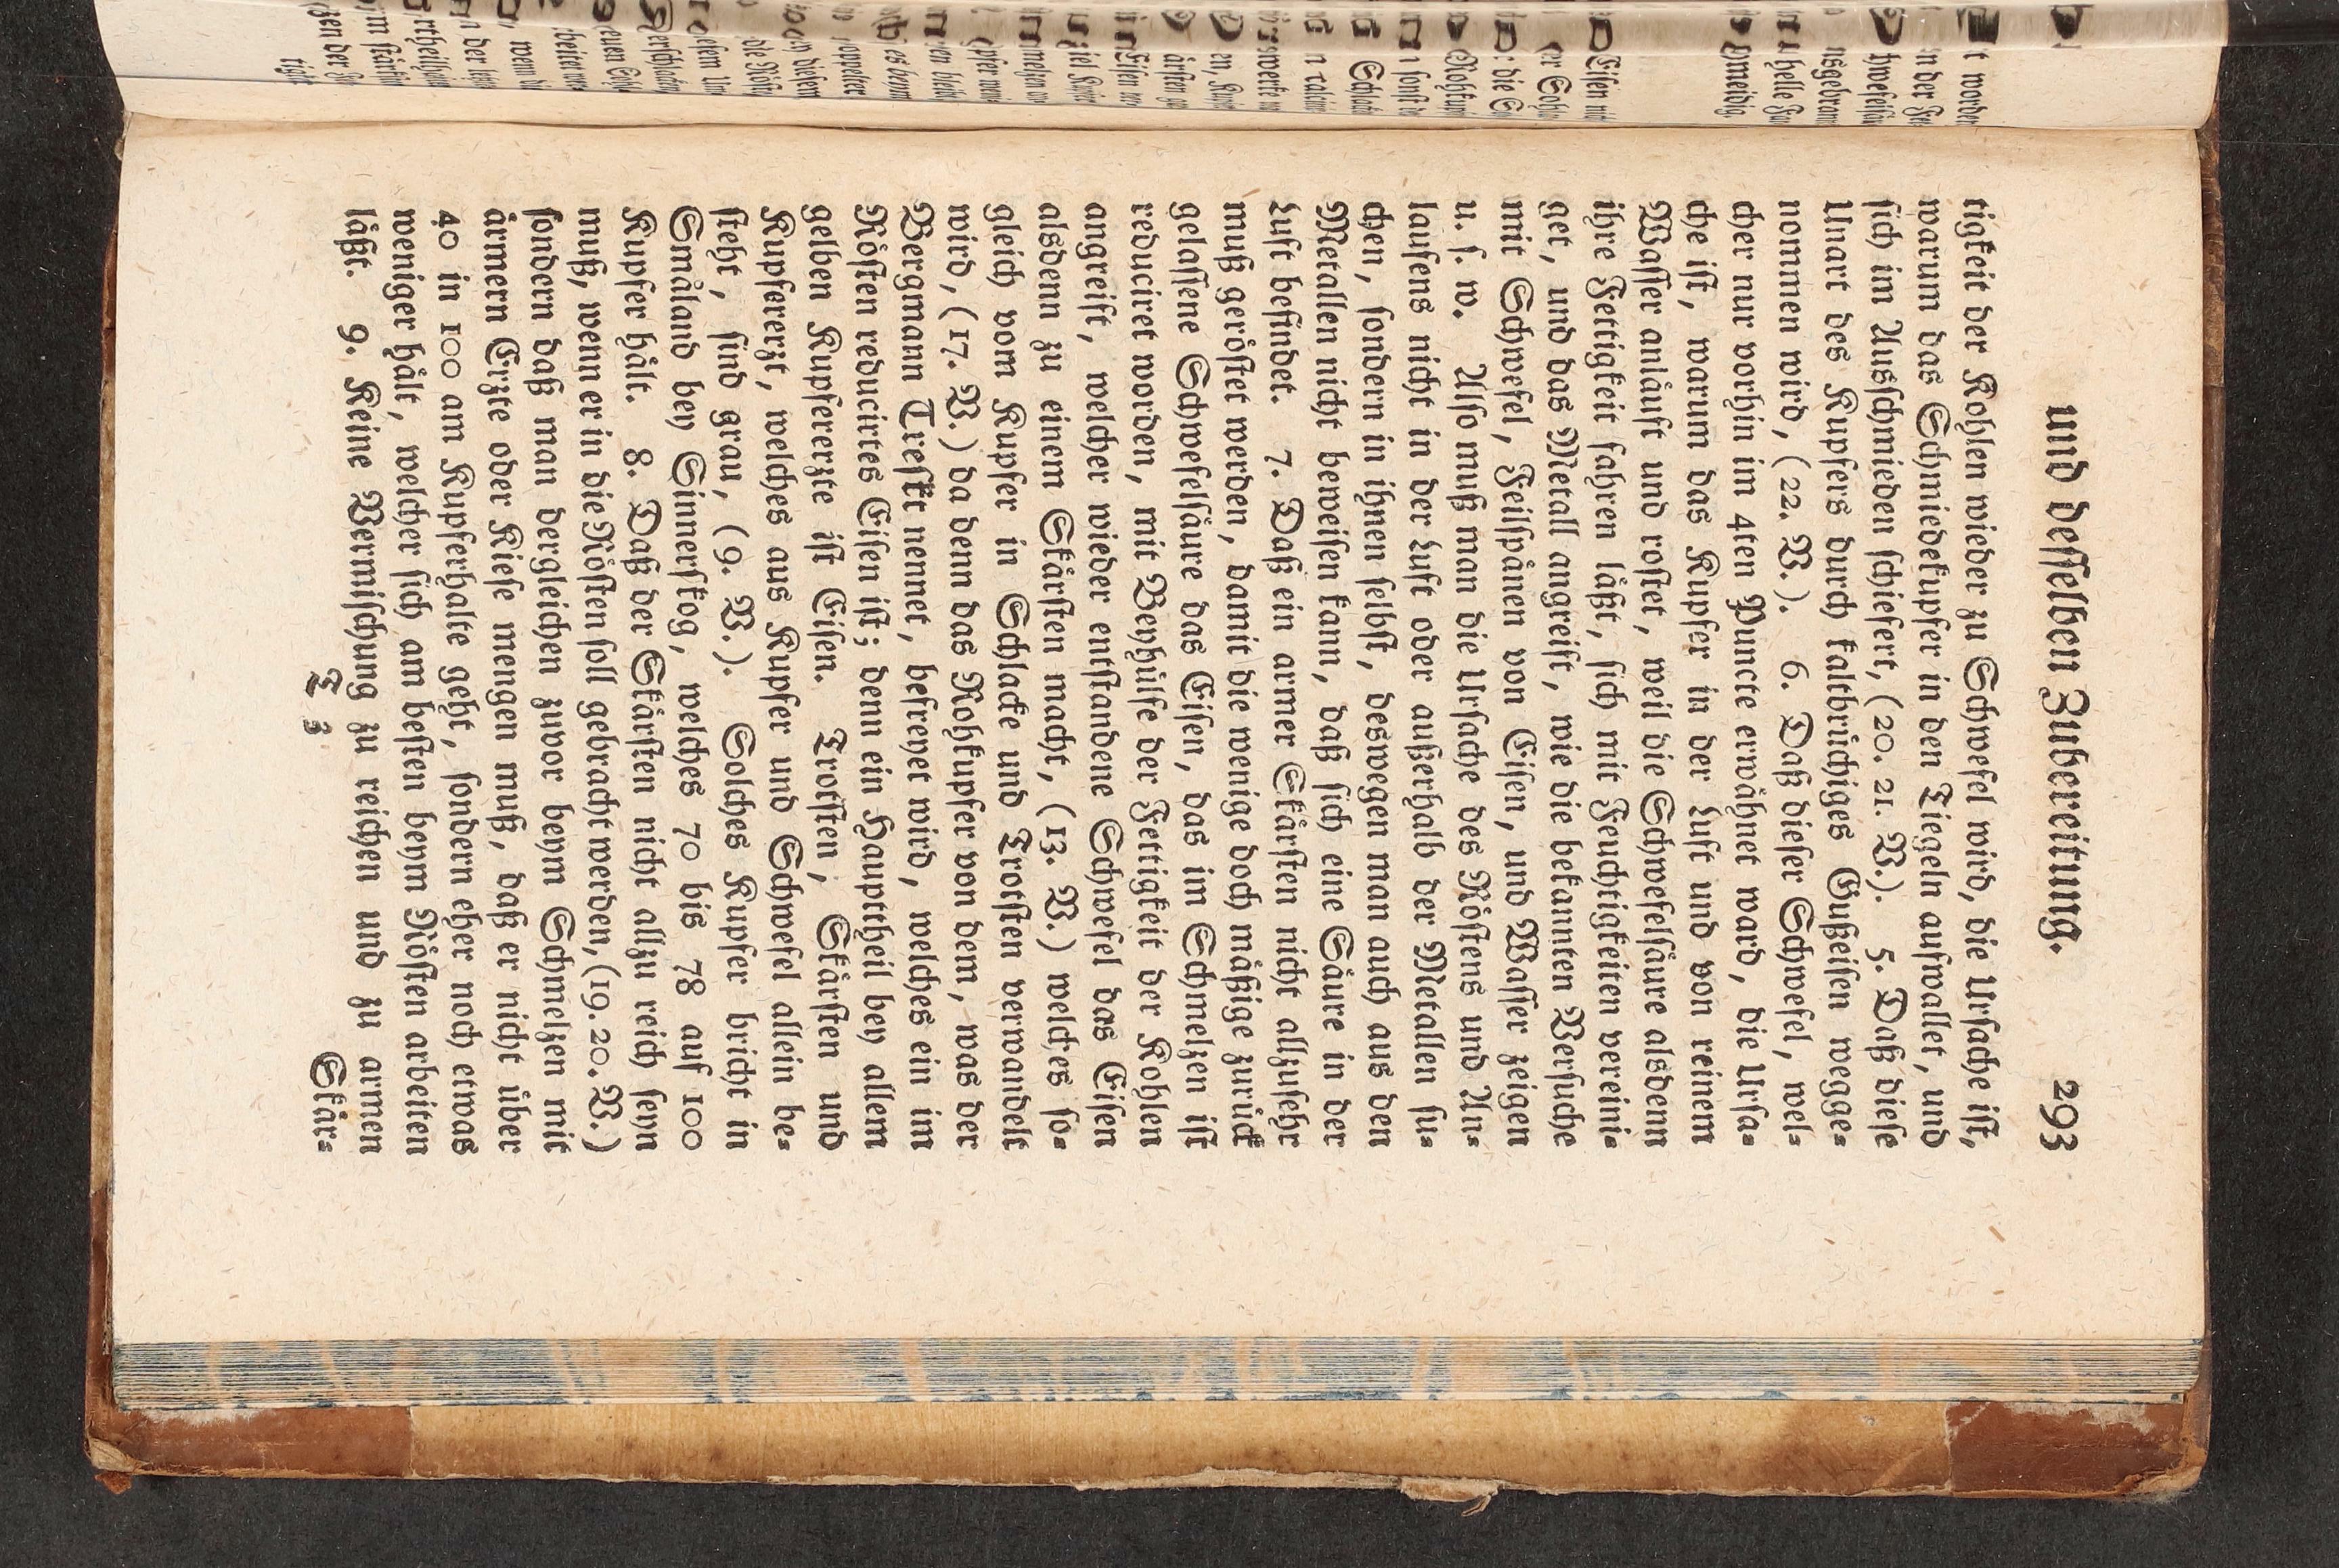 und desselben Zubereitung. 293
tigkeit der Kohlen wieder zu Schwefel wird, die Ursache ist,
warum das Schmiedekupfer in den Tiegeln aufwallet, und
sich im Ausschmieden schiefert, (20. 21. V.). 5. Daß diese
Unart des Kupfers durch kaltbrüchiges Gußeisen wegge-
nommen wird, (22. V.). 6. Daß dieser Schwefel, wel-
cher nur vorhin im 4ten Puncte erwähnet ward, die Ursa-
che ist, warum das Kupfer in der Luft und von reinem
Wasser anläuft und rostet, weil die Schwefelsäure alsdenn
ihre Fettigkeit fahren läßt, sich mit Feuchtigkeiten vereini-
get, und das Metall angreift, wie die bekannten Versuche
mit Schwefel, Feilspänen von Eisen, und Wasser zeigen
u. s. w. Also muß man die Ursache des Röstens und An-
laufens nicht in der Luft oder außerhalb der Metallen su-
chen, sondern in ihnen selbst, deswegen man auch aus den
Metallen nicht beweisen kann, daß sich eine Säure in der
Luft befindet. 7. Daß ein armer Skärsten nicht allzusehr
muß geröstet werden, damit die wenige doch mäßige zurück
gelassene Schwefelsäure das Eisen, das im Schmelzen ist
reduciret worden, mit Beyhülfe der Fettigkeit der Kohlen
angreift, welcher wieder entstandene Schwefel das Eisen
alsdenn zu einem Skärsten macht, (13. V.) welches so-
gleich vom Kupfer in Schlacke und Trotsten verwandelt
wird, (17. V.) da denn das Rohkupfer von dem, was der
Bergmann Treskt nennet, befreyet wird, welches ein im
Rösten reducirtes Eisen ist; denn ein Haupttheil bey allem
gelben Kupfererzte ist Eisen. Trotsten, Skärsten und
Kupfererzt, welches aus Kupfer und Schwefel allein be-
steht, sind grau, (9. V.). Solches Kupfer bricht in
Småland bey Sinnerskog, welches 70 bis 78 auf 100
Kupfer hält. 8. Daß der Skärsten nicht allzu reich seyn
muß, wenn er in die Rösten soll gebracht werden, (19. 20. V.)
sondern daß man dergleichen zuvor beym Schmelzen mit
ärmern Erzte oder Kiese mengen muß, daß er nicht über
40 in 100 am Kupferhalte geht, sondern eher noch etwas
weniger hält, welcher sich am besten beym Rösten arbeiten
läßt. 9. Keine Vermischung zu reichen und zu armen
T 3 Skär-